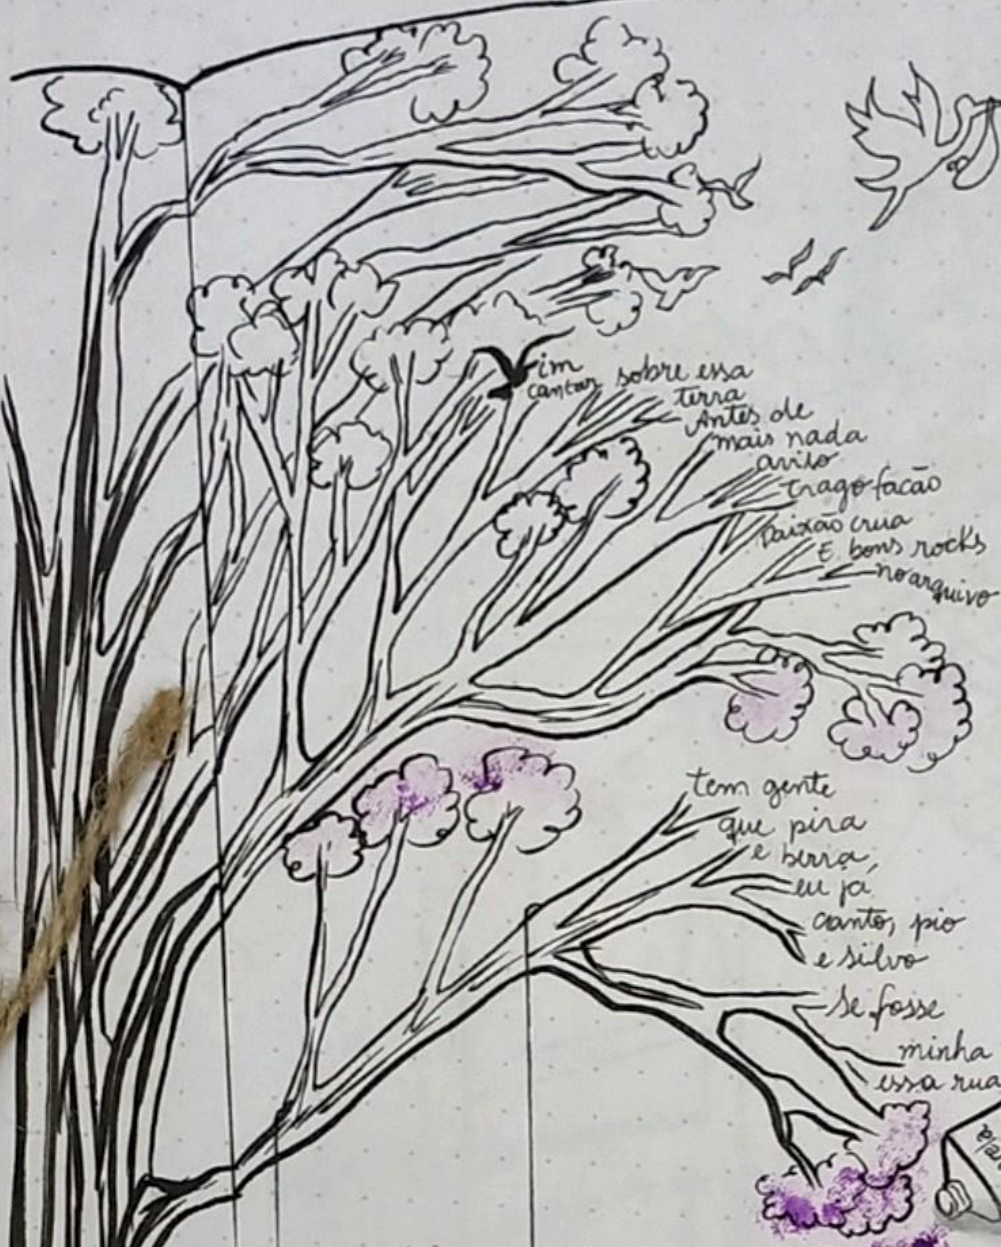 im
cantar sobre essa
terra
Antes de
mais nada
aviso
trago facão
paixão crua
E bons rocks
no arquivo
tem gente
que pira
e berra,
eu já
canto, pio
e silvo
se fosse
minha
essa rua